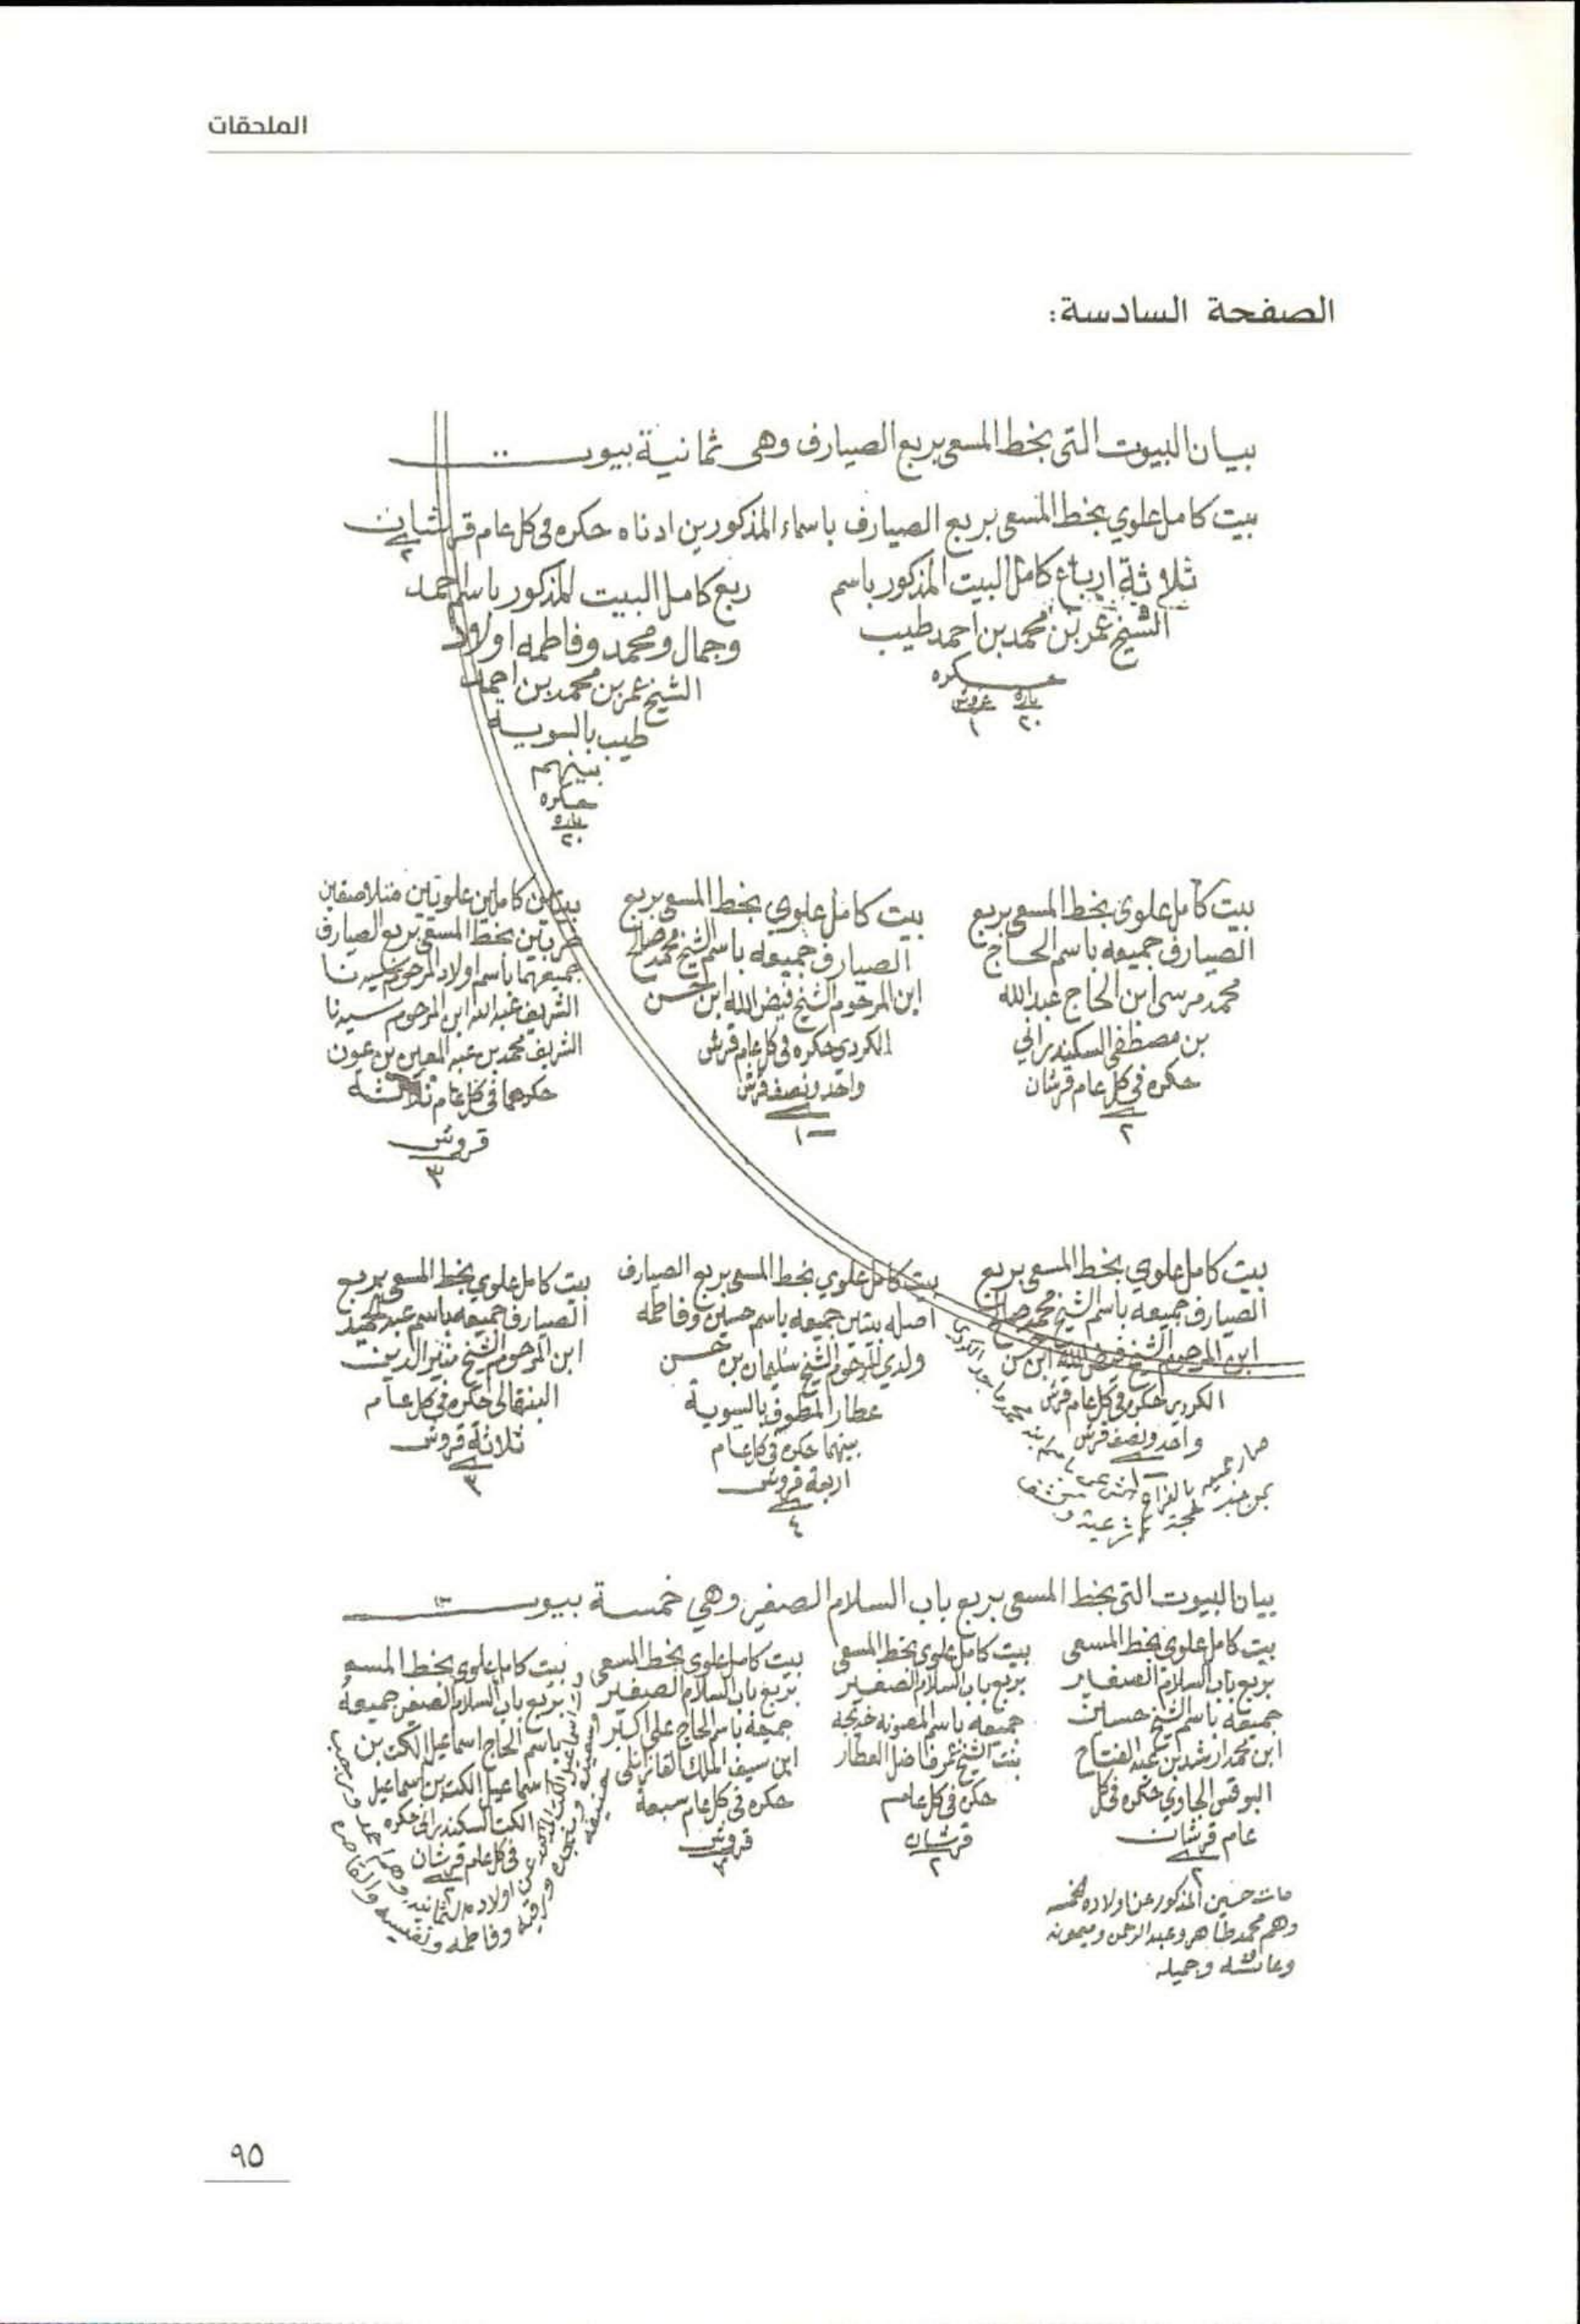 الملحقات
الصفحة السادسة:
بيان البيوت التى بخط المسعى بربع الصيارف وهى ثمانية بيوت
بيت كامل علوي بخط المسعى بربع الصيارف باسماء المذكورين ادناه حكره فى كل عام قرشان
٢
ثلاثة ارباع كامل البيت المذكور باسم
الشيخ عمر بن محمد بن احمد طيب
حكره
باره قروش
٢٠ ١
ربع كامل البيت المذكور باسم احمد
وجمال ومحمد وفاطمه اولاد
الشيخ عمر بن محمد بن احمد
طيب بالسويه
بينهم
حكره
باره
٢٠
بيت كامل علوى بخط المسعى بربع
الصيارف جميعه باسم الحاج
محمد مرسى ابن الحاج عبدالله
بن مصطفى السكندراني
حكره فى كل عام قرشان
٢
بيت كامل علوي بخط المسعى بربع
الصيارف جميعه باسم الشيخ محمد صالح
ابن المرحوم الشيخ فيض الله ابن حسن
الكردي حكره فى كل عام قرش
واحد ونصف قرش
١
بيتين كاملين علويتين متلاصقين
بخط المسعى بربع الصيارف
جميعهما باسم اولاد المرحوم سيدنا
الشريف عبدالله ابن المرحوم سيدنا
الشريف محمد بن عبد المعين بن عون
حكرهما فى كل عام ثلاثة
قروش
٣
بيت كامل علوي بخط المسعى بربع
الصيارف جميعه باسم الشيخ محمد صالح
ابن المرحوم الشيخ فيض الله ابن حسن
الكردي حكره فى كل عام قرش
واحد ونصف قرش
١
صار جميعه بالفراغ
بموجب حجة شرعية
بيت كامل علوي بخط المسعى بربع الصيارف
اصله بيتين جميعه باسم حسين وفاطمه
ولدي المرحوم الشيخ سليمان بن حسن
عطار المطوف بالسوية
بينهما حكره فى كل عام
اربعة قروش
٤
بيت كامل علوي بخط المسعى بربع
الصيارف جميعه باسم عبد الحميد
ابن المرحوم الشيخ منير الدين
البنقالى حكره فى كل عام
ثلاثة قروش
٣
بيان البيوت التى بخط المسعى بربع باب السلام الصغير وهي خمسة بيوت
بيت كامل علوى بخط المسعى
بربع باب السلام الصغير
جميعه باسم الشيخ حسين
ابن محمد ارشد بن عبد الفتاح
الجاوي حكره فى كل
عام قرشان
٢
مات حسين المذكور عن اولاده الخمسه
وهم محمد طاهر وعبد الرحمن وميمونه
وعائشه وجميله
بيت كامل علوى بخط المسعى
بربع باب السلام الصغير
جميعه باسم المصونه خديجه
بنت الشيخ عمر فاضل العطار
حكره فى كل عام
قرشان
٢
بيت كامل علوى بخط المسعى
بربع باب السلام الصغير
جميعه باسم الحاج على اكبر
ابن سيف الملك
حكره فى كل عام سبعة
قروش
بيت كامل علوى بخط المسعى
بربع باب السلام الصغير جميعه
باسم الحاج اسماعيل الكت بن
اسماعيل الكت بن اسماعيل
الكت السكندرانى حكره
فى كل عام قرشان
٢
عن اولاده الثمانيه وهم
وفاطمه ونفيسه
٩٥